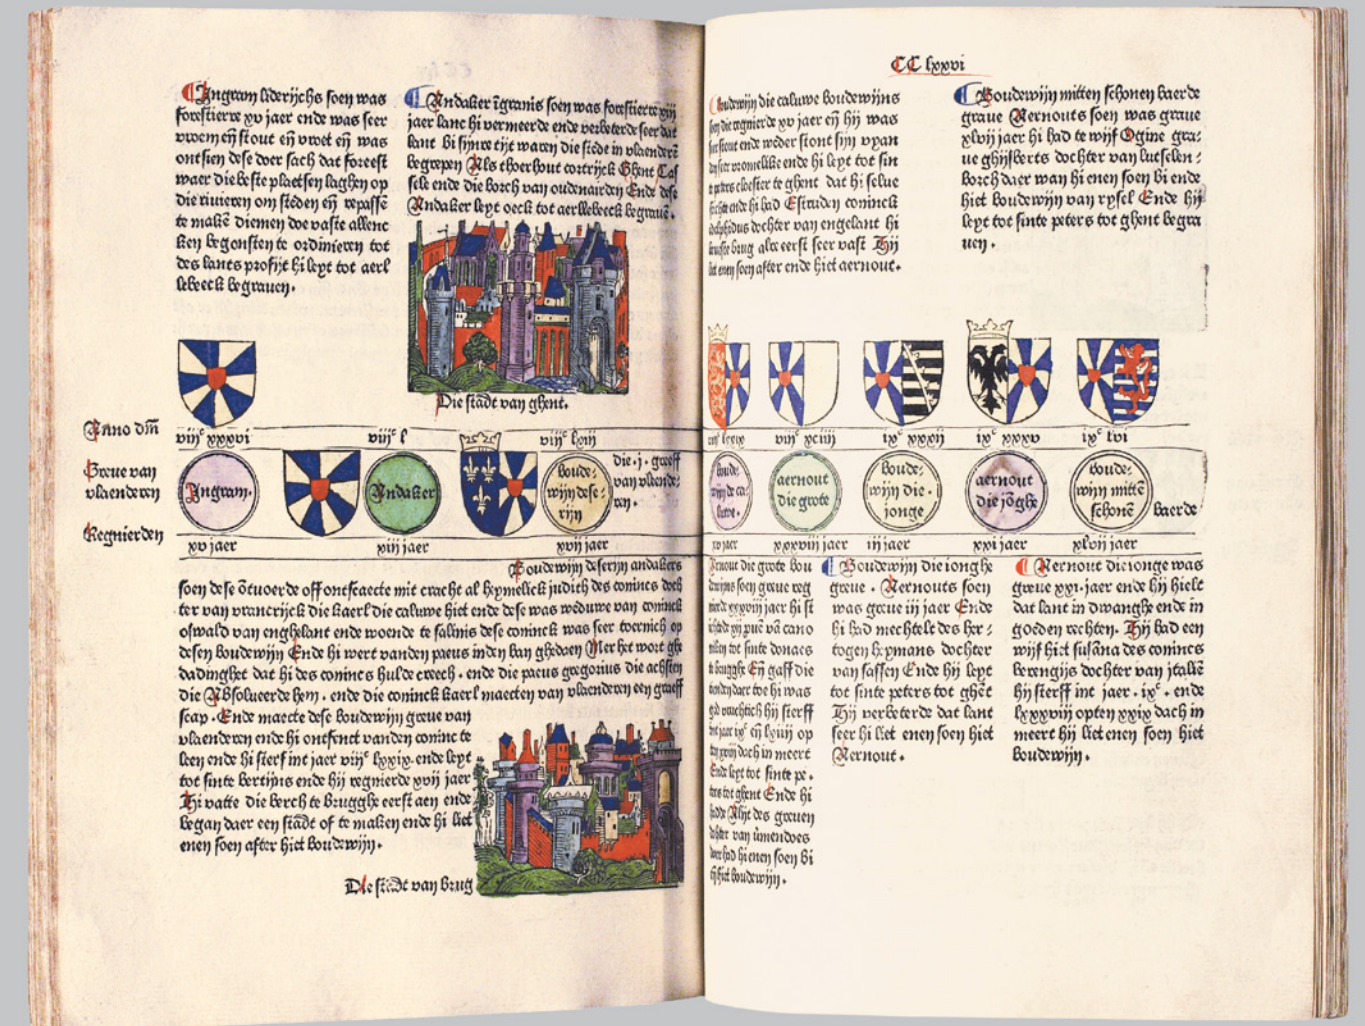 Ingram liderijchs soen was
forestierre xv jaer ende was seer
vroem eñ stout eñ vroet eñ was
ontsien dese doer sach dat foreest
waer die beste plaetsen laghen op
die riuieren om steden eñ repassē
te makē diemen doe vaste allenc
ken begonsten te ordinieren tot
des lants profijt hi leyt tot aerl
lebeeck begrauen.
Andaker īgranis soen was forestierre xiij
jaer lanc hi vermeerde ende verbeterde seer dat
lant bi sijnre tijt waren die stede in vlaenderē
begrepen Als thorhout cortrijck Ghent Cas
sele ende die borch van oudenairden Ende dese
Andaker leyt oeck tot aerllebeeck begrauē.
Die stadt van ghent.
Anno dm̄
viijc xxxvi
viijc l
viijc lxiij
Greue van
vlaenderen
Ingram.
Andaker
boude-
wijn dese-
rijn
die.j. greeff
van vlaende-
ren.
Regnierden
xv jaer
xiij jaer
xvij jaer
Boudewijn deserijn andakers
soen dese ōtuoerde off ontscaecte mit cracht al heymelick judith des conincs doch
ter van vrancrijck die kaerl die caluwe hiet ende dese was weduwe van coninck
oswald van enghelant ende woende te salinis dese coninck was seer toernich op
desen boudewijn Ende hi wert vanden paeus inden ban ghedaen Mer het wort ghe
dadinghet dat hi des conincs hulde creech. ende die paeus gregorius die achsten
die Absolueerde hem. ende die coninck kaerl maecten van vlaenderen een graeff
scap. Ende maecte dese boudewijn greue van
vlaenderen ende hi ontfenct vanden coninc te
leen ende hi sterf int jaer viijc lxxix. ende leyt
tot sinte bertijns ende hij regnierde xvij jaer
Hi vatte die berch te Brugghe eerst aen ende
began daer een stadt of te maken ende hi liet
enen soen after hiet boudewijn.
Die stadt van Brug
CC lxxvi
boudewijn die caluwe boudewijns
soen die regnierde xv jaer eñ hij was
stout ende weder stont sijn vyan
den seer vromelike ende hi leyt tot sint
peters cloester te ghent dat hi selue
stichte ende hi had Estruden coninck
dochter van engelant hi
brug alre eerst seer vast Hij
liet enen soen after ende hiet aernout.
Boudewijn mitten schonen baerde
graue Aernouts soen was graue
xlvij jaer hi had te wijf Ogine gra-
ue ghijsberts dochter van lutselen-
borch daer wan hi enen soen bi ende
hiet boudewijn van rysel Ende hij
leyt tot sinte peters tot ghent begra
uen.
viijc lxxix
viijc xciiij
ixc xxxij
ixc xxxv
ixc lvi
boude-
wijn die ca-
luwe.
aernout
die grote
boude-
wijn die.
jonge
aernout
die jōghe
boude-
wijn mittē
schonē
baerde
xv jaer
xxxviij jaer
iij jaer
xxi jaer
xlvij jaer
Aernout die grote bou
dewijns soen greue reg
nierde xxxviij jaer hi st
ichtede xij vā cano
niken tot sinte donaes
te brugghe Eñ gaff die
daer toe hi was
hij sterff
int jaer ixc eñ lxiiij op
ten xxvij dach in meert
Ende leyt tot sinte pe.
ters tot ghent Ende hi
hadde Alijt des greuen
dochter van vermendoes
daer had hi enen soen bi
eñ hiet boudewijn.
Boudewijn die ionghe
greue. Aernouts soen
was greue iij jaer Ende
hi had mechtelt des her-
togen heymans dochter
van sassen Ende hij leyt
tot sinte peters tot ghēt
Hij verbeterde dat lant
seer hi liet enen soen hiet
Aernout.
Aernout die ionge was
greue xxi.jaer ende hij hielt
dat lant in dwanghe ende in
goeden rechten. Hij had een
wijf hiet susāna des conincs
berengijs dochter van jtaliē
hij sterff int jaer. ixc. ende
lxxxviij opten xxix dach in
meert hij liet enen soen hiet
boudewijn.